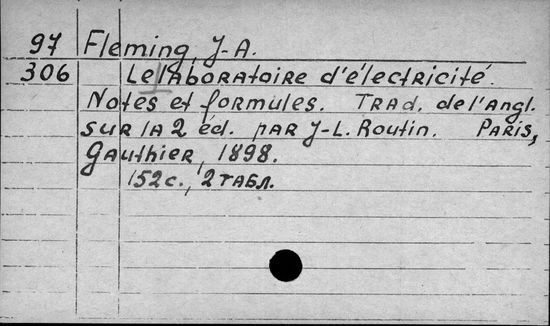 97 Fleming, J-A.
306 Le laboratoire d'électricité.
Notes et formules. Trad. de l'angl.
sur la 2 éd. par J-L. Routin. Paris,
Gauthier, 1898.
152 с., 2 табл.